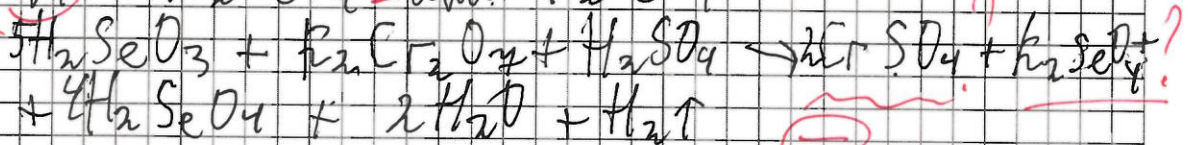 5H₂SeO₃ + K₂Cr₂O₇ + H₂SO₄ → 2CrSO₄ + K₂SeO₄ + ?
+ 4H₂SeO₄ + 2H₂O + H₂↑